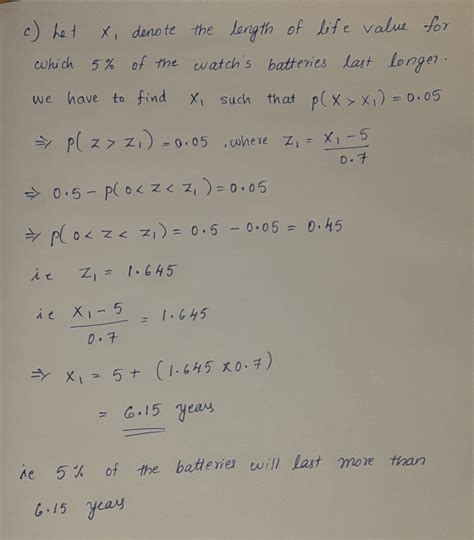 c) Let x₁ denote the length of life value for
which 5% of the watch's batteries last longer.
we have to find x₁ such that p(x > x₁) = 0.05
⇒ p(z > z₁) = 0.05 , where z₁ = (x₁ - 5)/0.7
⇒ 0.5 - p(0 < z < z₁) = 0.05
⇒ p(0 < z < z₁) = 0.5 - 0.05 = 0.45
ie z₁ = 1.645
ie (x₁ - 5)/0.7 = 1.645
⇒ x₁ = 5 + (1.645 × 0.7)
= 6.15 years
ie 5% of the batteries will last more than
6.15 years